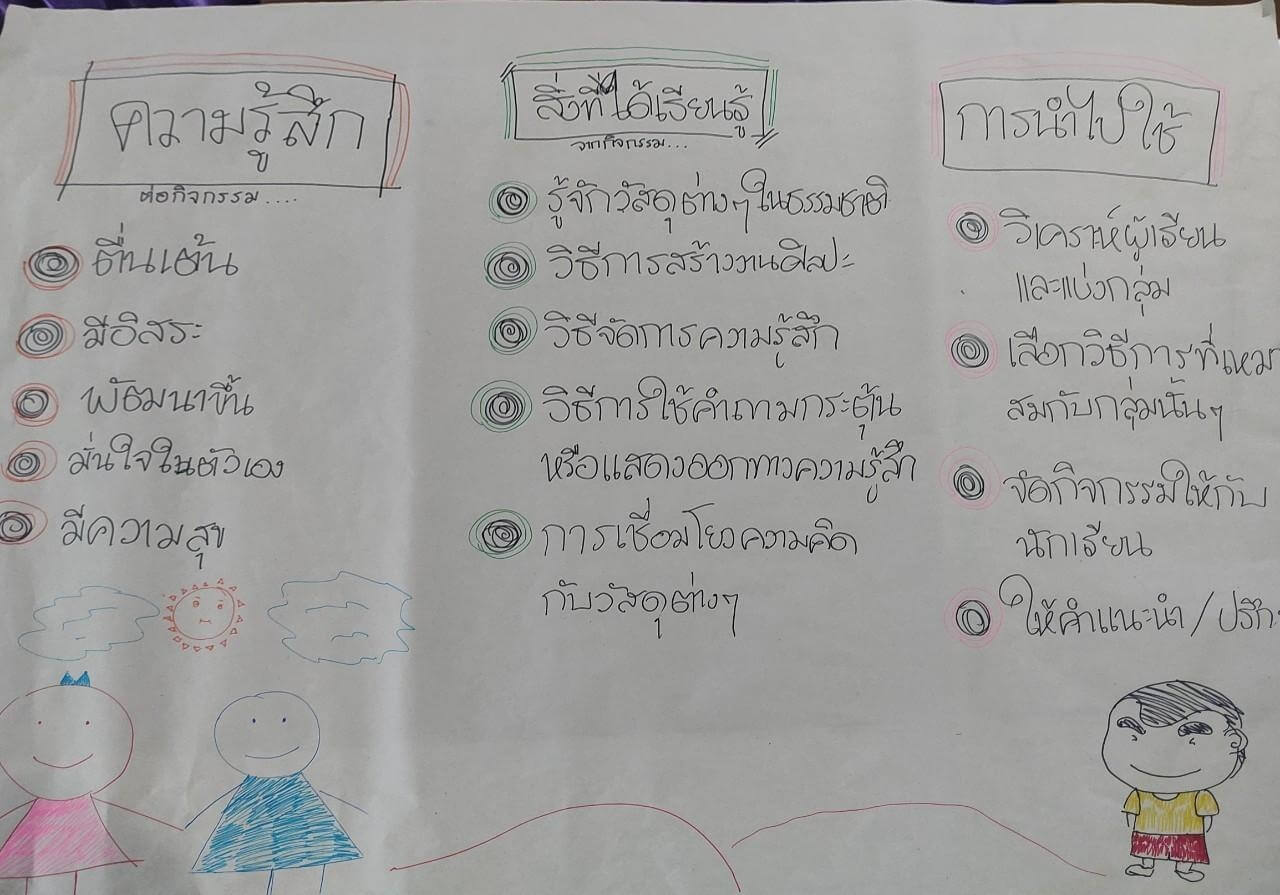 ความรู้สึก
ต่อกิจกรรม....
ตื่นเต้น
มีอิสระ
พัฒนาขึ้น
มั่นใจในตัวเอง
มีความสุข
สิ่งที่ได้เรียนรู้
จากกิจกรรม...
รู้จักวัสดุต่างๆในธรรมชาติ
วิธีการสร้างงานศิลปะ
วิธีจัดการความรู้สึก
วิธีการใช้คำถามกระตุ้น
หรือแสดงออกทางความรู้สึก
การเชื่อมโยงความคิด
กับวัสดุต่างๆ
การนำไปใช้
วิเคราะห์ผู้เรียน
และแบ่งกลุ่ม
เลือกวิธีการที่เหมา
สมกับกลุ่มนั้นๆ
จัดกิจกรรมให้กับ
นักเรียน
ให้คำแนะนำ/ปรึก